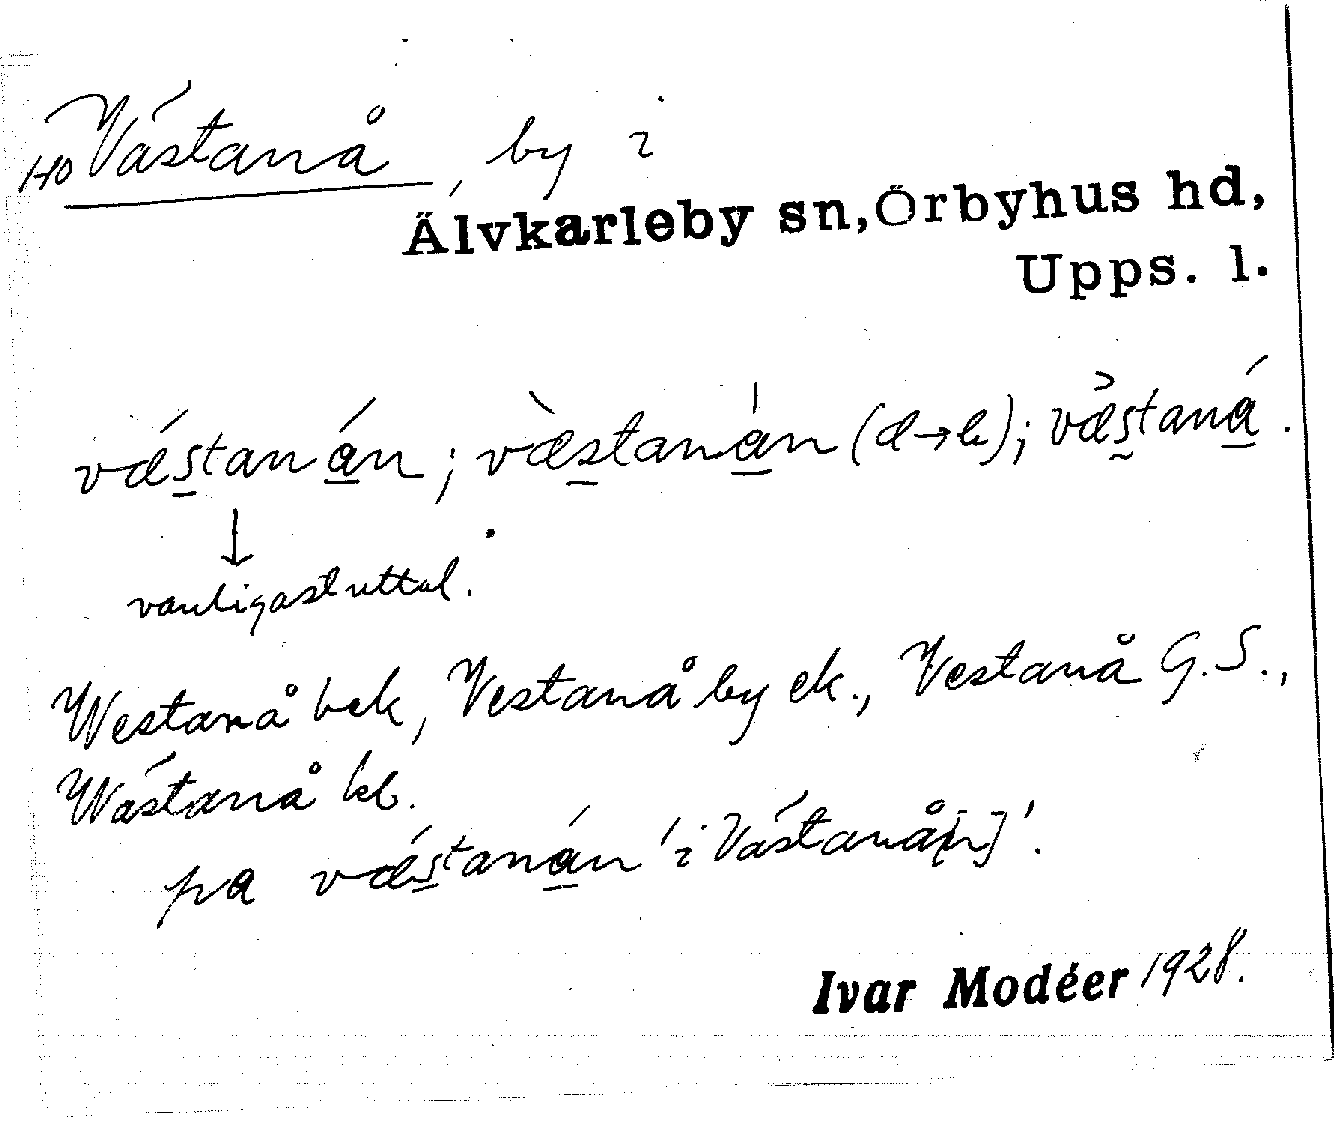 140 Västanå, by i
Älvkarleby sn, Örbyhus hd,
Upps. l.
vǽs̱taná̱n; væ̀s̱taná̱n (d→k); væ̉s̱taná̱.
↓
vanligast uttal.
Westanå bek, Vestanå by ek., Vestanå G.S.,
Wästanå kb.
pa vǽs̱taná̱n 'i Västanå[n]'.
Ivar Modéer 1928.